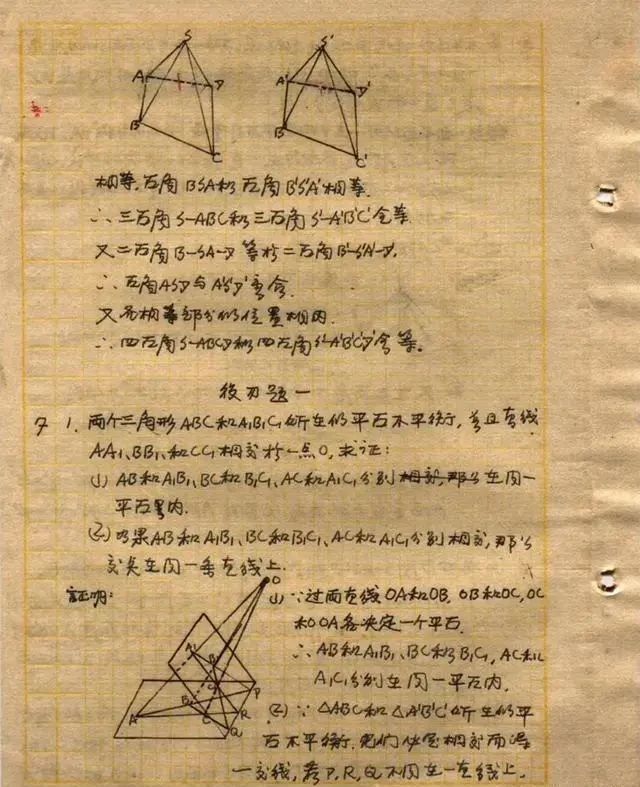 S
S'
A
D
A'
D'
B
C
B'
C'
相等,面角BSA和面角B'S'A'相等.
∴三面角S-ABC和三面角S'-A'B'C'全等
又二面角B-SA-D等於二面角B'-S'A'-D'.
∴面角ASD与A'S'D'重合.
又各相等部分的位置相同.
∴四面角S-ABCD和四面角S'-A'B'C'D'全等。
復习题一
7 1. 两个三角形ABC和A₁B₁C₁所在的平面不平衡,並且直线
AA₁、BB₁、和CC₁相交於一点O,求证:
(1) AB和A₁B₁、BC和B₁C₁、AC和A₁C₁分别在同一
平面内.
(2) 如果AB和A₁B₁、BC和B₁C₁、AC和A₁C₁分别相交,那么
交点在同一条直线上.
証明:
O
A
B
C
P
R
Q
(1) ∵过两直线OA和OB,OB和OC,OC
和OA各决定一个平面.
∴AB和A₁B₁、BC和B₁C₁,AC和
A₁C₁分别在同一平面内.
(2) ∵△ABC和△A'B'C'所在的平
面不平衡,它们必定相交而得
一交线,若P,R,Q不同在一直线上,